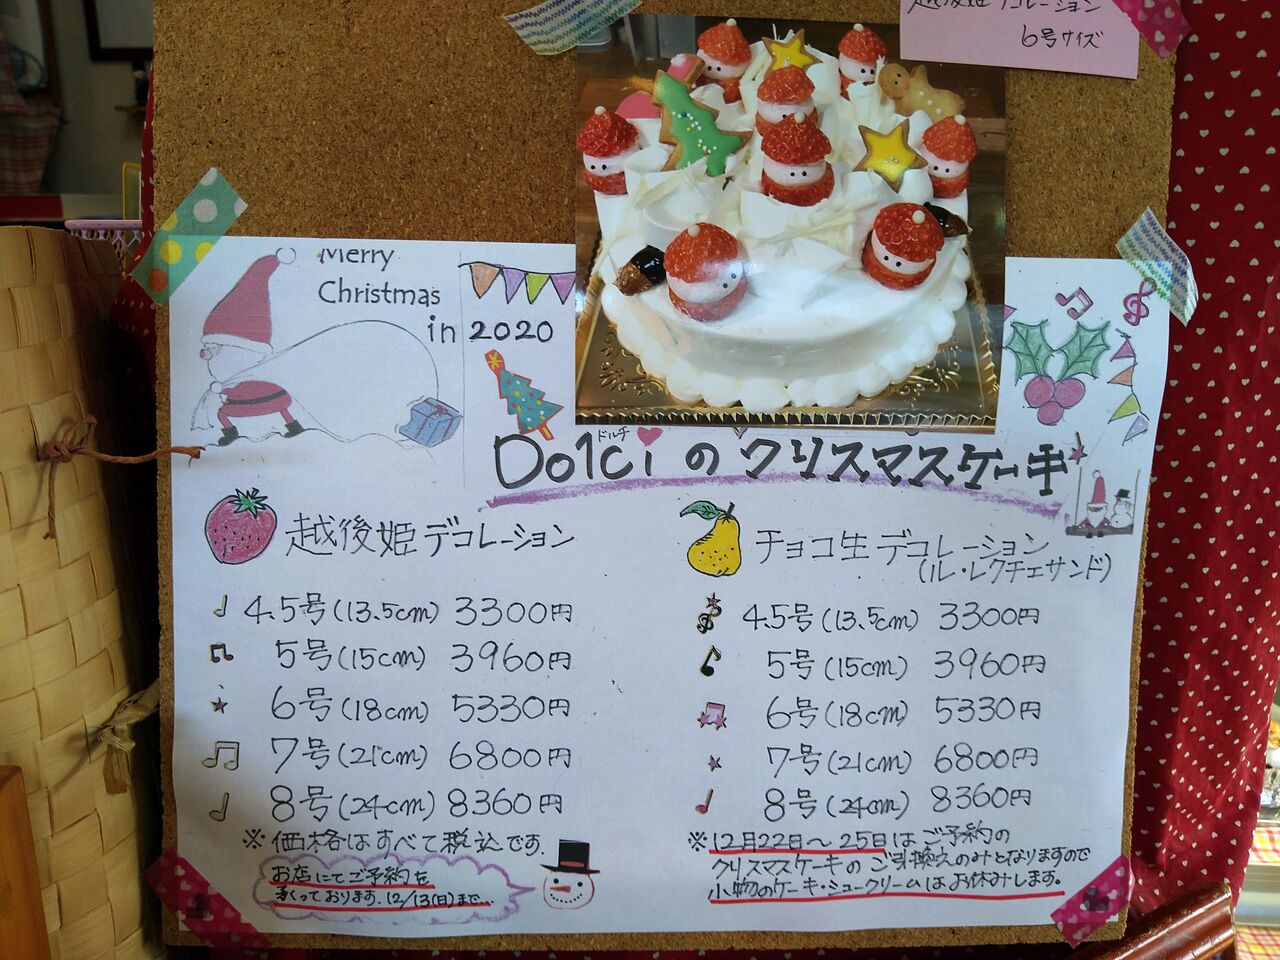 越後姫デコレーション
6号サイズ
Merry
Christmas
in 2020
ドルチ
Dolci のクリスマスケーキ
越後姫デコレーション
4.5号(13.5cm) 3300円
5号(15cm) 3960円
6号(18cm) 5330円
7号(21cm) 6800円
8号(24cm) 8360円
※価格はすべて税込です.
お店にてご予約を
承っております.12/13(日)まで.
チョコ生デコレーション
(ル・レクチェサンド)
4.5号(13.5cm) 3300円
5号(15cm) 3960円
6号(18cm) 5330円
7号(21cm) 6800円
8号(24cm) 8360円
※12月22日～25日はご予約の
クリスマスケーキのご引換えのみとなりますので
小物のケーキ・シュークリームはお休みします.